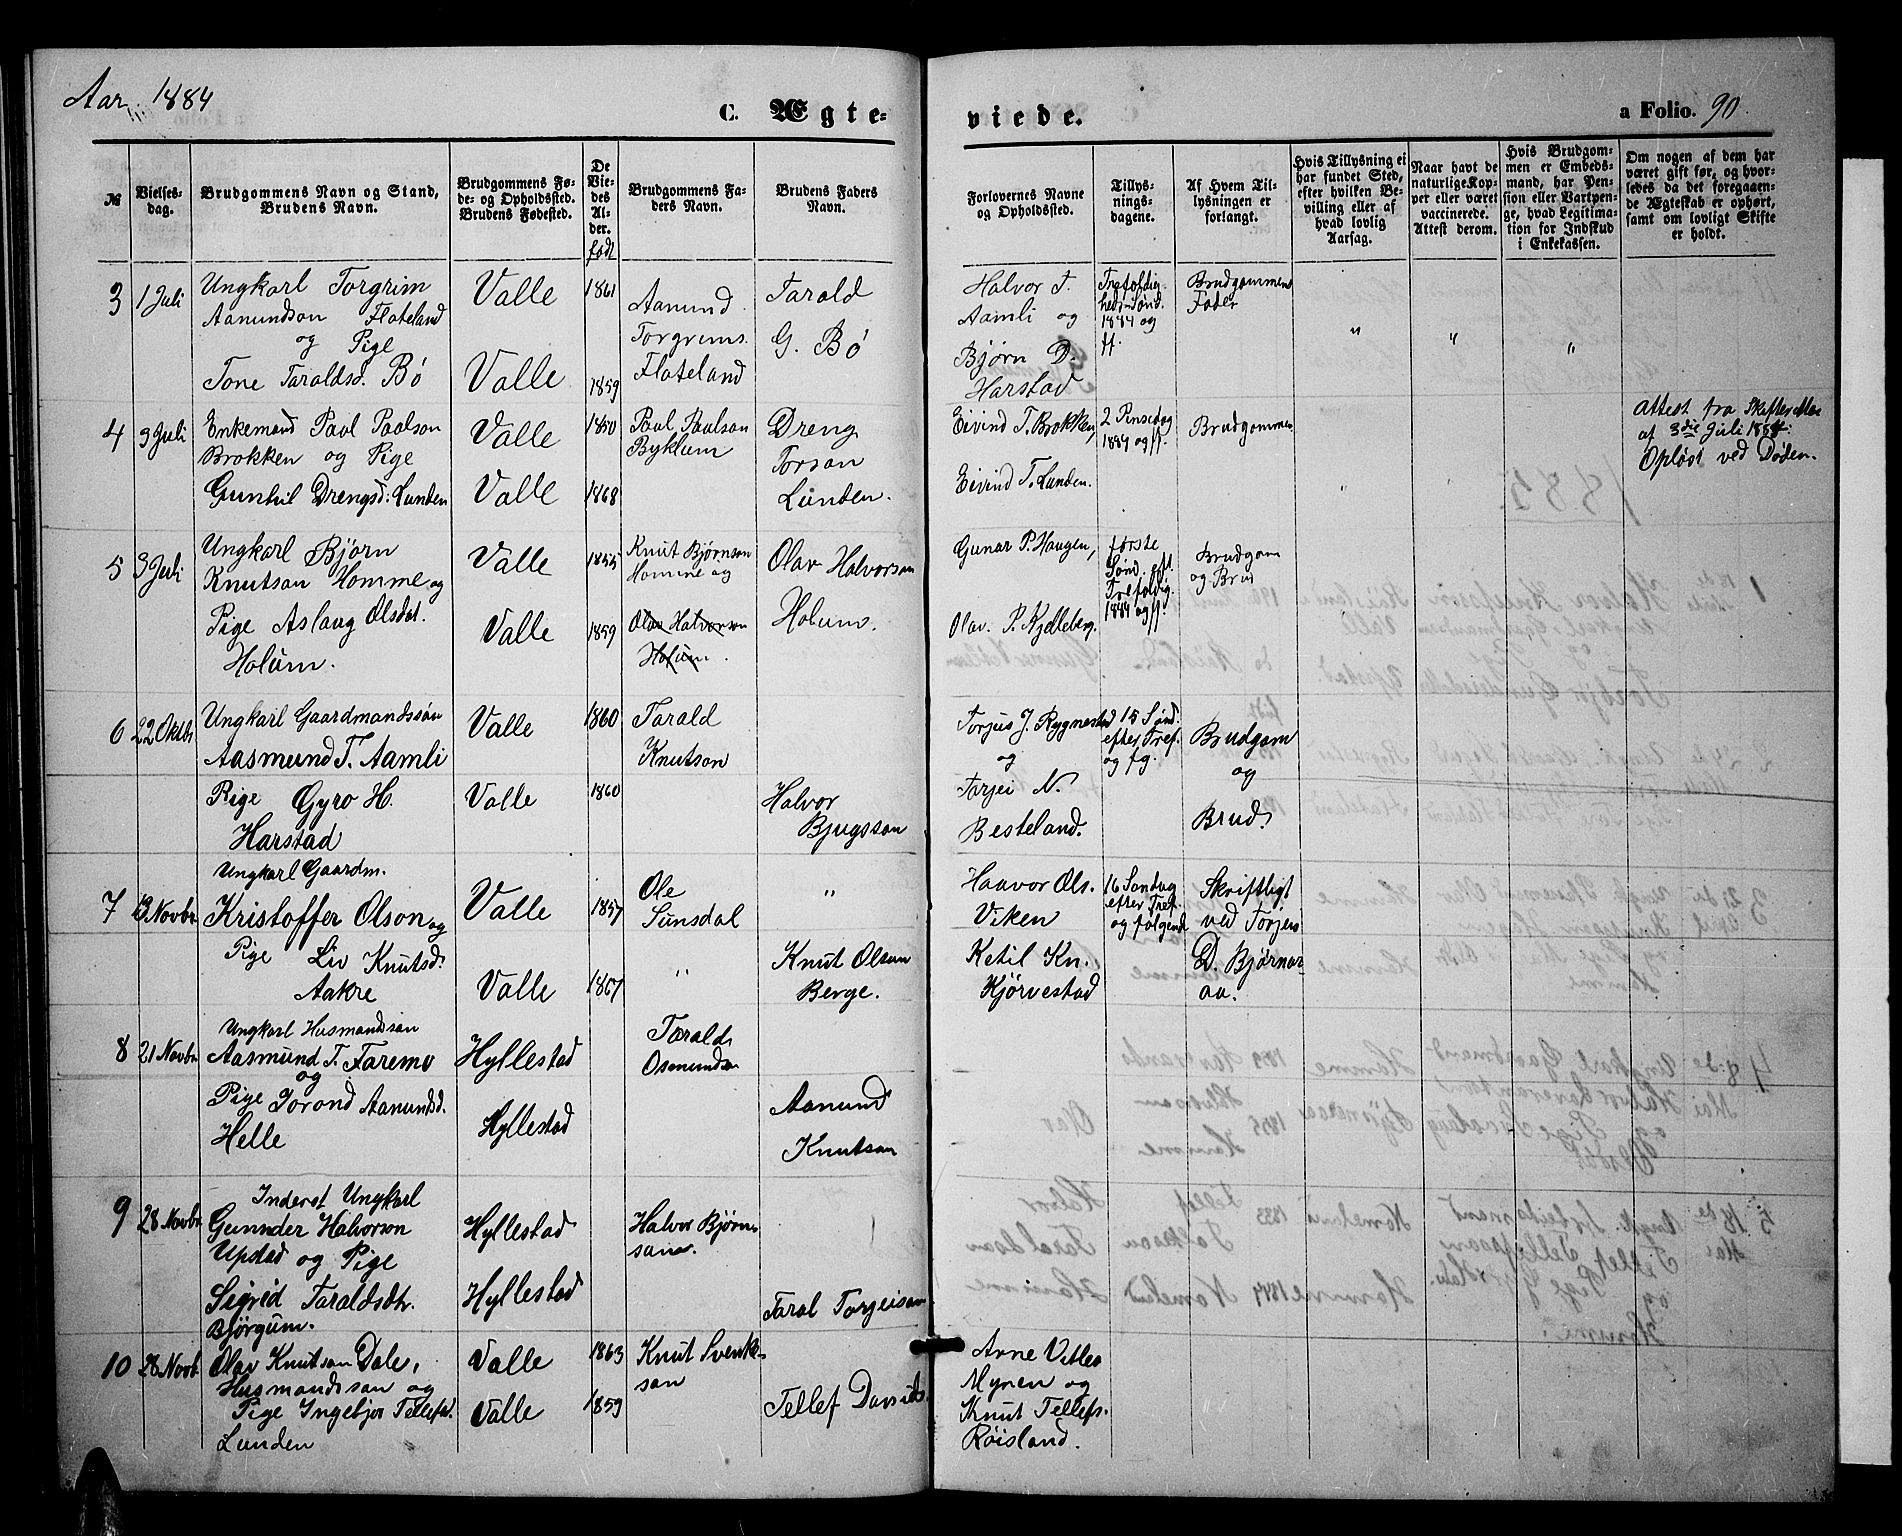 Aar 1884
C. Ægte-
viede.
a Folio. 90.
№
Vielses-
dag.
Brudgommens Navn og Stand,
Brudens Navn.
Brudgommens Fø-
de- og Opholdssted.
Brudens Fødested.
De
Vie-
des
Al-
der.
født
Brudgommens Fa-
ders Navn.
Brudens Faders
Navn.
Forlovernes Navne
og Opholdssted.
Tillys-
nings-
dagene.
Af Hvem Til-
lysningen er
forlangt.
Hvis Tillysning ei
har fundet Sted,
efter hvilken Be-
villing eller af
hvad lovlig
Aarsag.
Naar havt de
naturlige Kop-
per eller været
vaccinerede.
Attest derom.
Hvis Brudgom-
men er Embeds-
mand, har Pen-
sion eller Vartpen-
ge, hvad Legitima-
tion for Indskud
i Enkekassen.
Om nogen af dem har
været gift før, og hvor-
ledes da det foregaaen-
de Ægteskab er ophørt,
samt om lovligt Skifte
er holdt.
3
1 Juli
Ungkarl Torgrim
Aanundson Flateland
og Pige
Tone Taraldsd. Bö
Valle
Valle
1861
1859
Aanund
Torgrims.
Flateland
Tarald
G. Bö
Halvor T.
Aamli og
Bjørn D.
Harstad
Trefoldig-
heds-Sønd.
1884 og
ff.
Brudgommens
Fader
"
"
"
4
3 Juli
Enkemand Paul Paulson
Brokken og Pige
Gunhil Drengsd: Lunden
Valle
Valle
1850
1868
Paul Paulson
Byklum
Dreng
Torson
Lunden.
Eivind T. Brokken,
Eivind T. Lunden.
2 Pinsedag
1884 og ff.
Brudgommen
"
"
"
Attest fra Skifteretten
af 3die Juli 1884:
Opløst ved Døden.
5
3 Juli
Ungkarl Bjørn
Knutson Homme og
Pige Aslaug Olsdat.
Holum.
Valle
Valle
1855
1859
Knut Bjørnson
Homme og
Olav Halvorson
Holum.
Olav Halvorson
Holum.
Gunar P. Haugen,
Olav. P. Kjelleberg.
første
Sønd. eft.
Trefoldig.
1884 og ff.
Brudgom
og Brud
6
22 Oktbr
Ungkarl Gaardmandssön
Aasmund T. Aamli
Pige Gyro H.
Harstad
Valle
Valle
1860
1860
Tarald
Knutson
Halvor
Bjugsson
Torjus J. Rygnestad
og
Torjei N.
Besteland.
15 Sønd.
efter Tref.
og fg.
Brudgom
og
Brud.
7
13 Novbr
Ungkarl Gaardm.
Kristoffer Olson og
Pige Liv Knutsd.
Aakre
Valle
Valle
1857
1867
Ole
Sunsdal
"
"
Knut Olson
Berge.
Haavor Ols.
Viken
Ketil Kn.
Kjörvestad
16 Sondag
efter Tref.
og følgende
Skriftligt
ved Torjus
D. Bjørnar-
aa.
8
21 Novbr
Ungkarl Husmandsson
Aasmund T. Faremo
og
Pige Torond Aanundsd.
Helle
Hyllestad
Hyllestad
Tarald
Osmundson
Aanund
Knutson
9
28 Novbr
Inderst Ungkarl
Gunnder Halvorson
Upstad og Pige
Sigrid Taraldsdtr.
Bjørgum.
Hyllestad
Hyllestad
Halvor Bjørn-
son.
Taral Torjeison
10
28 Novb.
Olav Knutson Dale,
Husmandsson og
Pige Ingebjor Tellefsd.
Lunden
Valle
Valle
1863
1859
Knut Svenke-
son
Tellef Davids.
Arne Vetles
Myren og
Knut Tellefs.
Röisland.